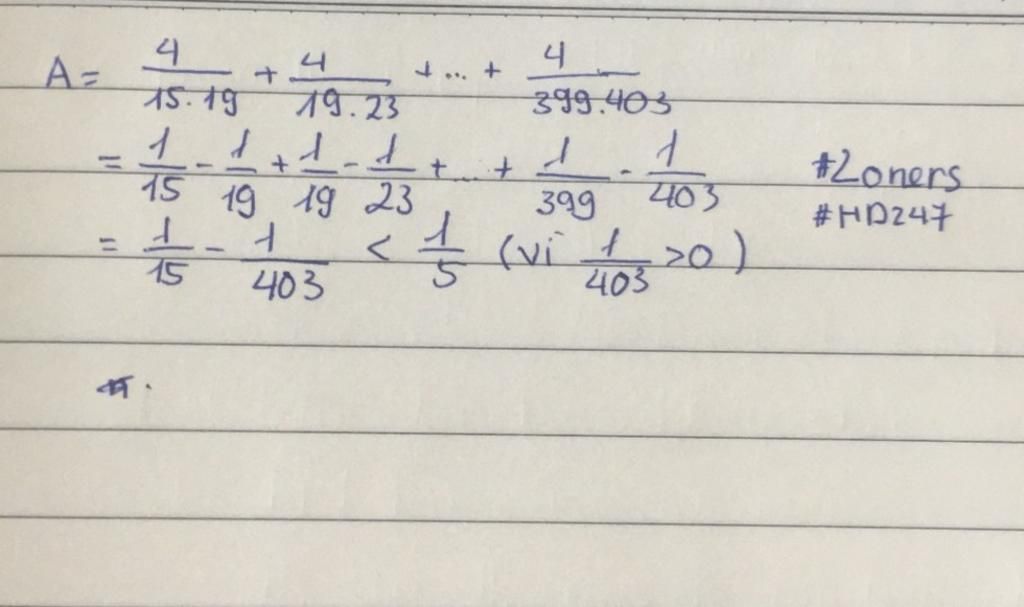 A = 4/15.19 + 4/19.23 + ... + 4/399.403
= 1/15 - 1/19 + 1/19 - 1/23 + ... + 1/399 - 1/403 #Zoners
#HD247
= 1/15 - 1/403 < 1/5 (vì 1/403 >0 )